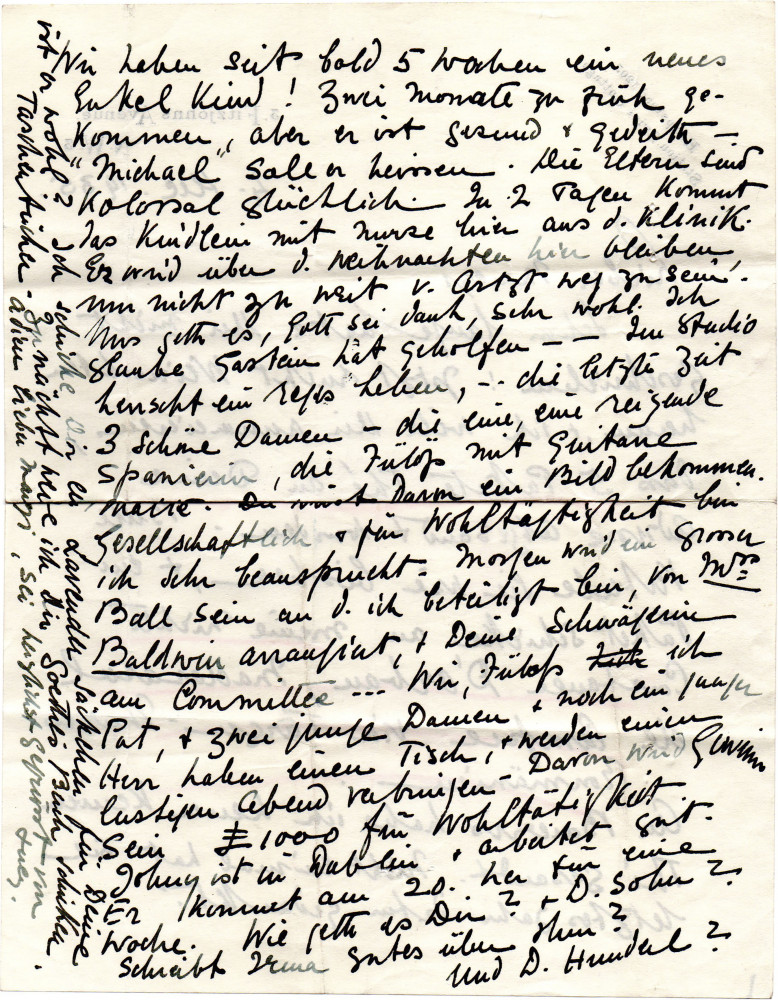 Wir haben seit bald 5 Wochen ein neues
Enkel Kind! Zwei Monate zu früh ge-
kommen, aber er ist gesund & gedeiht —
"Michael" soll er heissen. Die Eltern sind
Kolossal glücklich. In 2 Tagen kommt
das Kindlein mit Nurse hier aus d. Klinik.
Er wird über d. Weihnachten hier bleiben,
um nicht zu weit v. Artzt weg zu sein.
Uns geth es, Gott sei dank, sehr wohl. Ich
glaube Gastein hat geholfen — — Im Studio
herrscht ein reges Leben, — die letzte Zeit
3 schöne Damen — die eine, eine reizende
Spanierin, die Fülöp mit Guitare
malte. Du wirst davon ein Bild bekommen.
Gesellschaftlich & für Wohltäftigkeit bin
ich sehr beansprucht. Morgen wird ein grosser
Ball sein an d. ich beteiligt bin, von Mrs
Baldwin arrangirt, & Deine Schwägerin
am Committee --- Wir, Fülöp ich
Pat, & zwei junge Damen & noch ein junger
Herr haben einen Tisch, & werden einen
lustigen Abend verbringen — Davon wird Gewinn
sein £1000 für Wohltätigkeit
Johny ist in Dublin & arbeitet gut.
Er kommt am 20. her für eine
Woche. Wie geth es Dir? & D. Sohn?
Schreibt Irma gutes über ihn?
Und D. Hunderl?
ist er wohl? Ich schicke Dir ein Lavendle Säkchen für Deine
Taschentücher - Zu nächst werde ich Dir Goethes Buch schicken.
adieu liebe Margi, sei herzlichst geküsst von
Lucy.